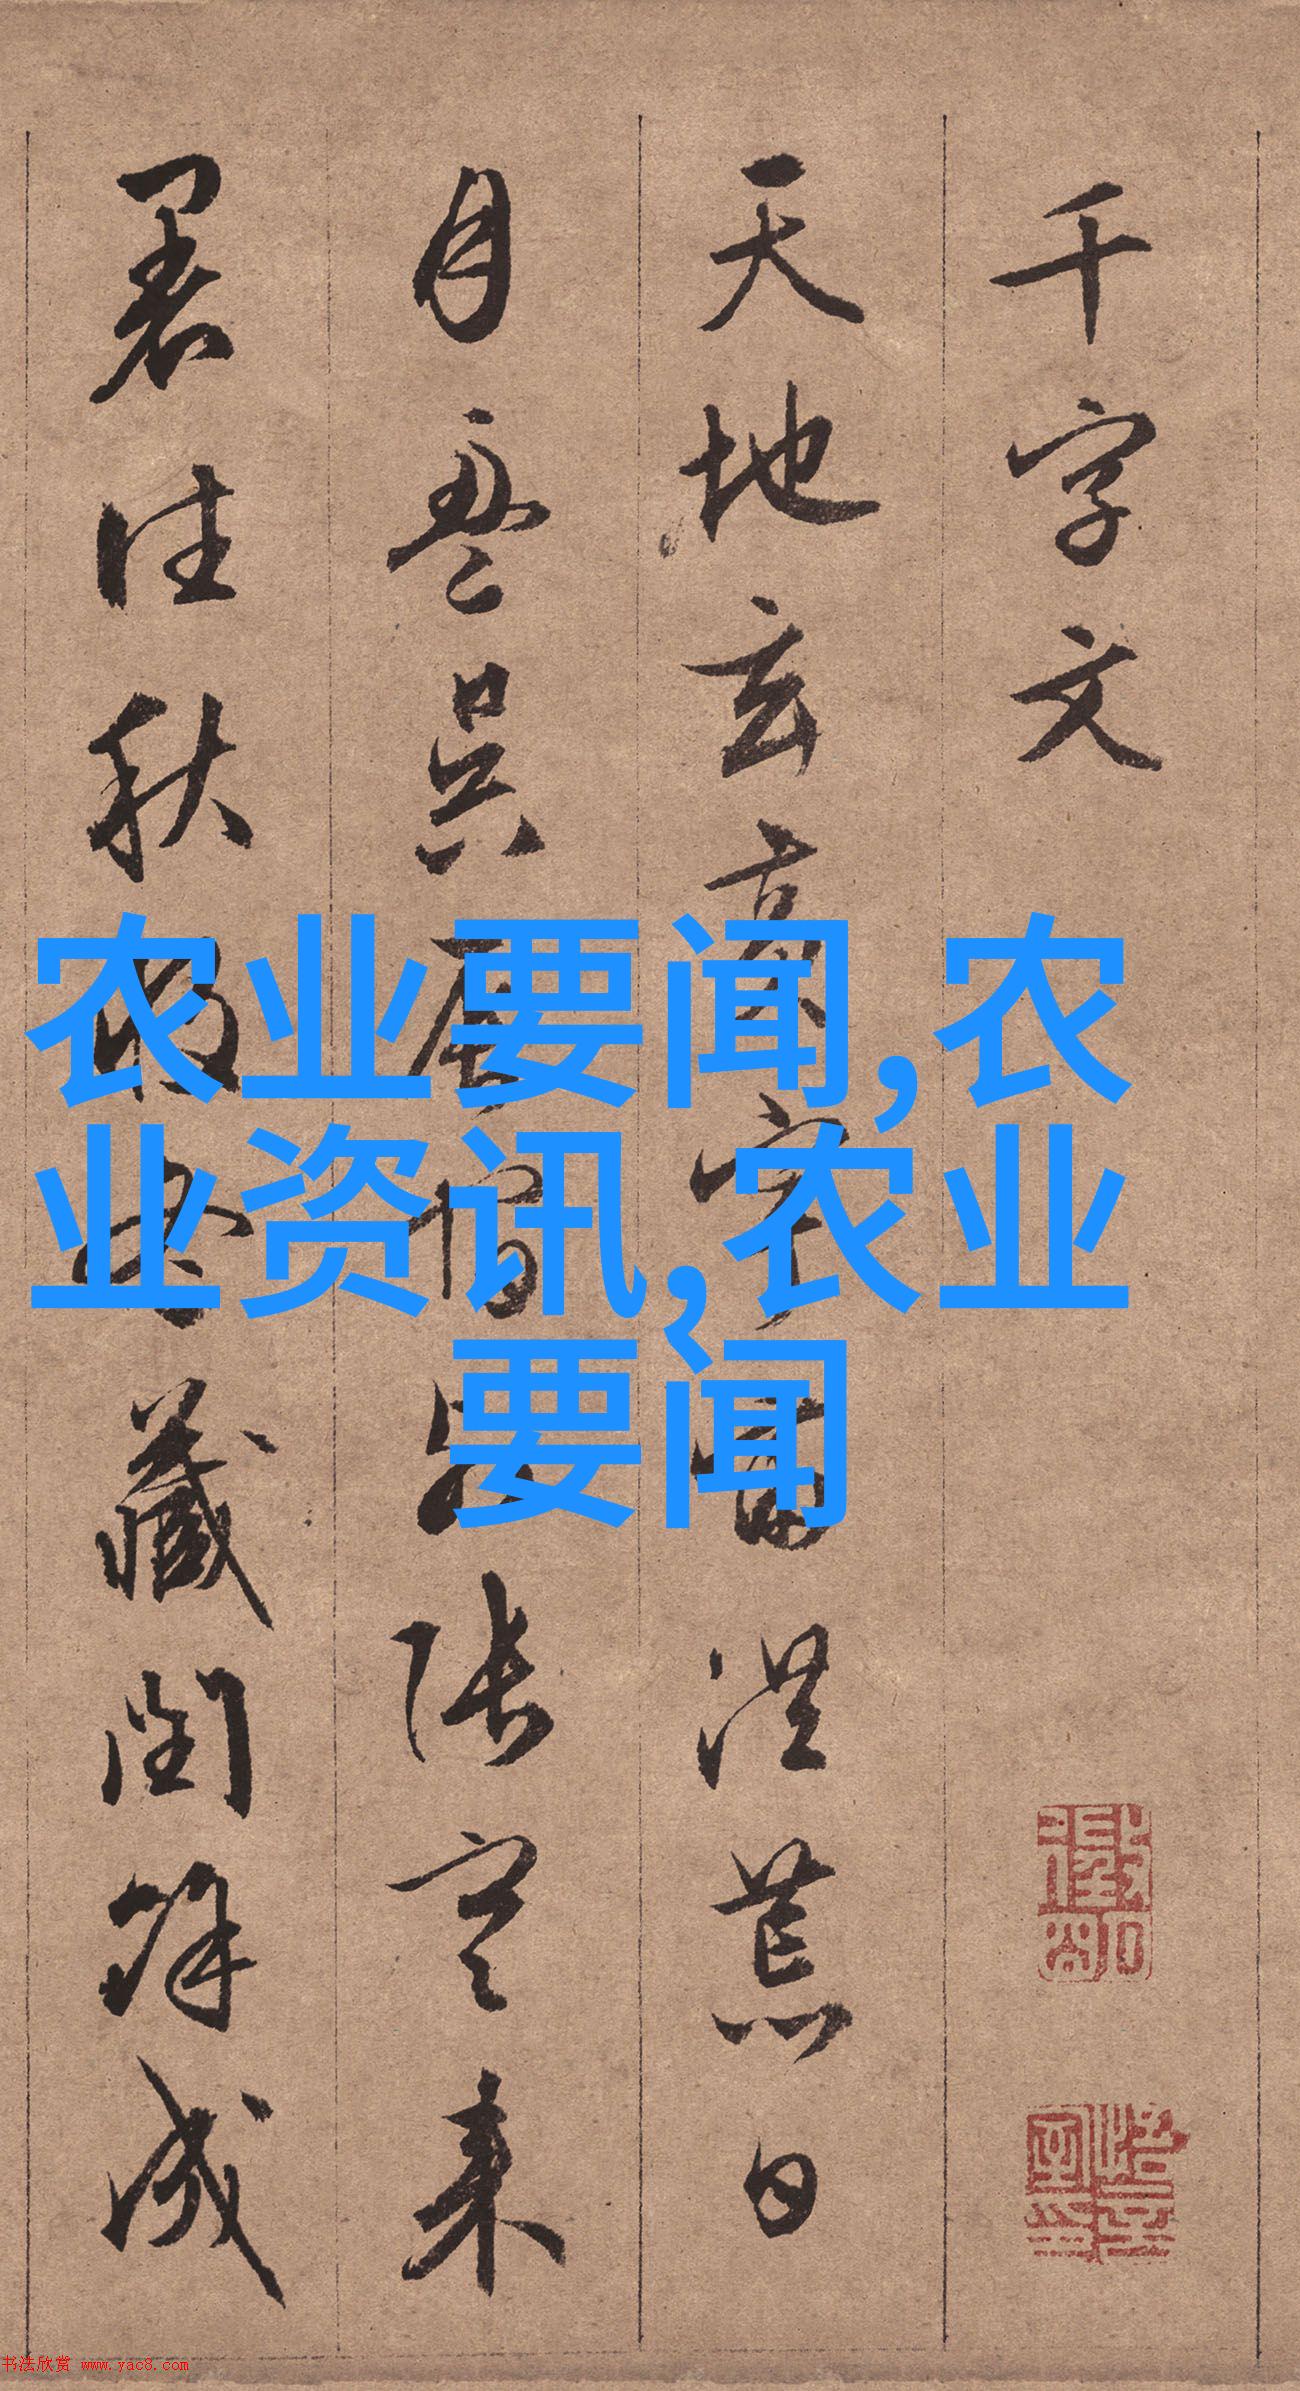 千字文
天地玄黄宇宙洪荒日
月盈昃辰宿列張寒来
暑往秋收冬藏閏餘成
农业要闻,农
业资讯,农业
要闻
书法欣赏 www.yac8.com